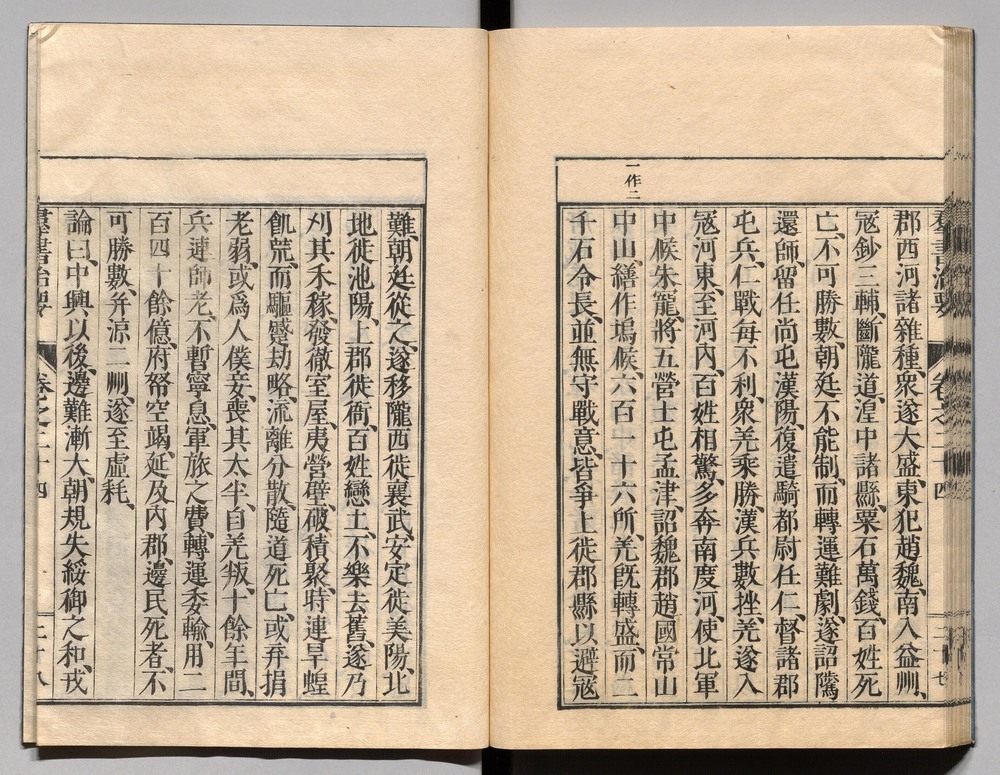 郡西河諸雜種衆遂大盛、東犯趙魏、南入益州、
寇鈔三輔、斷隴道、湟中諸縣、粟石萬錢、百姓死
亡、不可勝數、朝廷不能制、而轉運難劇、遂詔隲
還師、留任尚屯漢陽、復遣騎都尉任仁、督諸郡
屯兵、仁戰每不利、衆羌乘勝、漢兵數挫、羌遂入
寇河東、至河內、百姓相驚、多奔南度河、使北軍
中候朱寵、將五營士屯孟津、詔魏郡趙國常山
一作二
中山、繕作塢候六百一十六所、羌既轉盛、而二
千石令長、並無守戰意、皆爭上徙郡縣以避寇
難、朝廷從之、遂移隴西徙襄武、安定徙美陽、北
地徙池陽、上郡徙衙、百姓戀土、不樂去舊、遂乃
刈其禾稼、發徹室屋、夷營壁、破積聚、時連旱蝗
飢荒、而驅蹙劫略、流離分散、隨道死亡、或弃捐
老弱、或爲人僕妾、喪其太半、自羌叛、十餘年間、
兵連師老、不暫寧息、軍旅之費、轉運委輸、用二
百四十餘億、府帑空竭、延及內郡、邊民死者、不
可勝數、并涼二州、遂至虛耗、
論曰、中興以後、邊難漸大、朝規失綏御之和、戎
羣書治要 卷之二十四 二十八